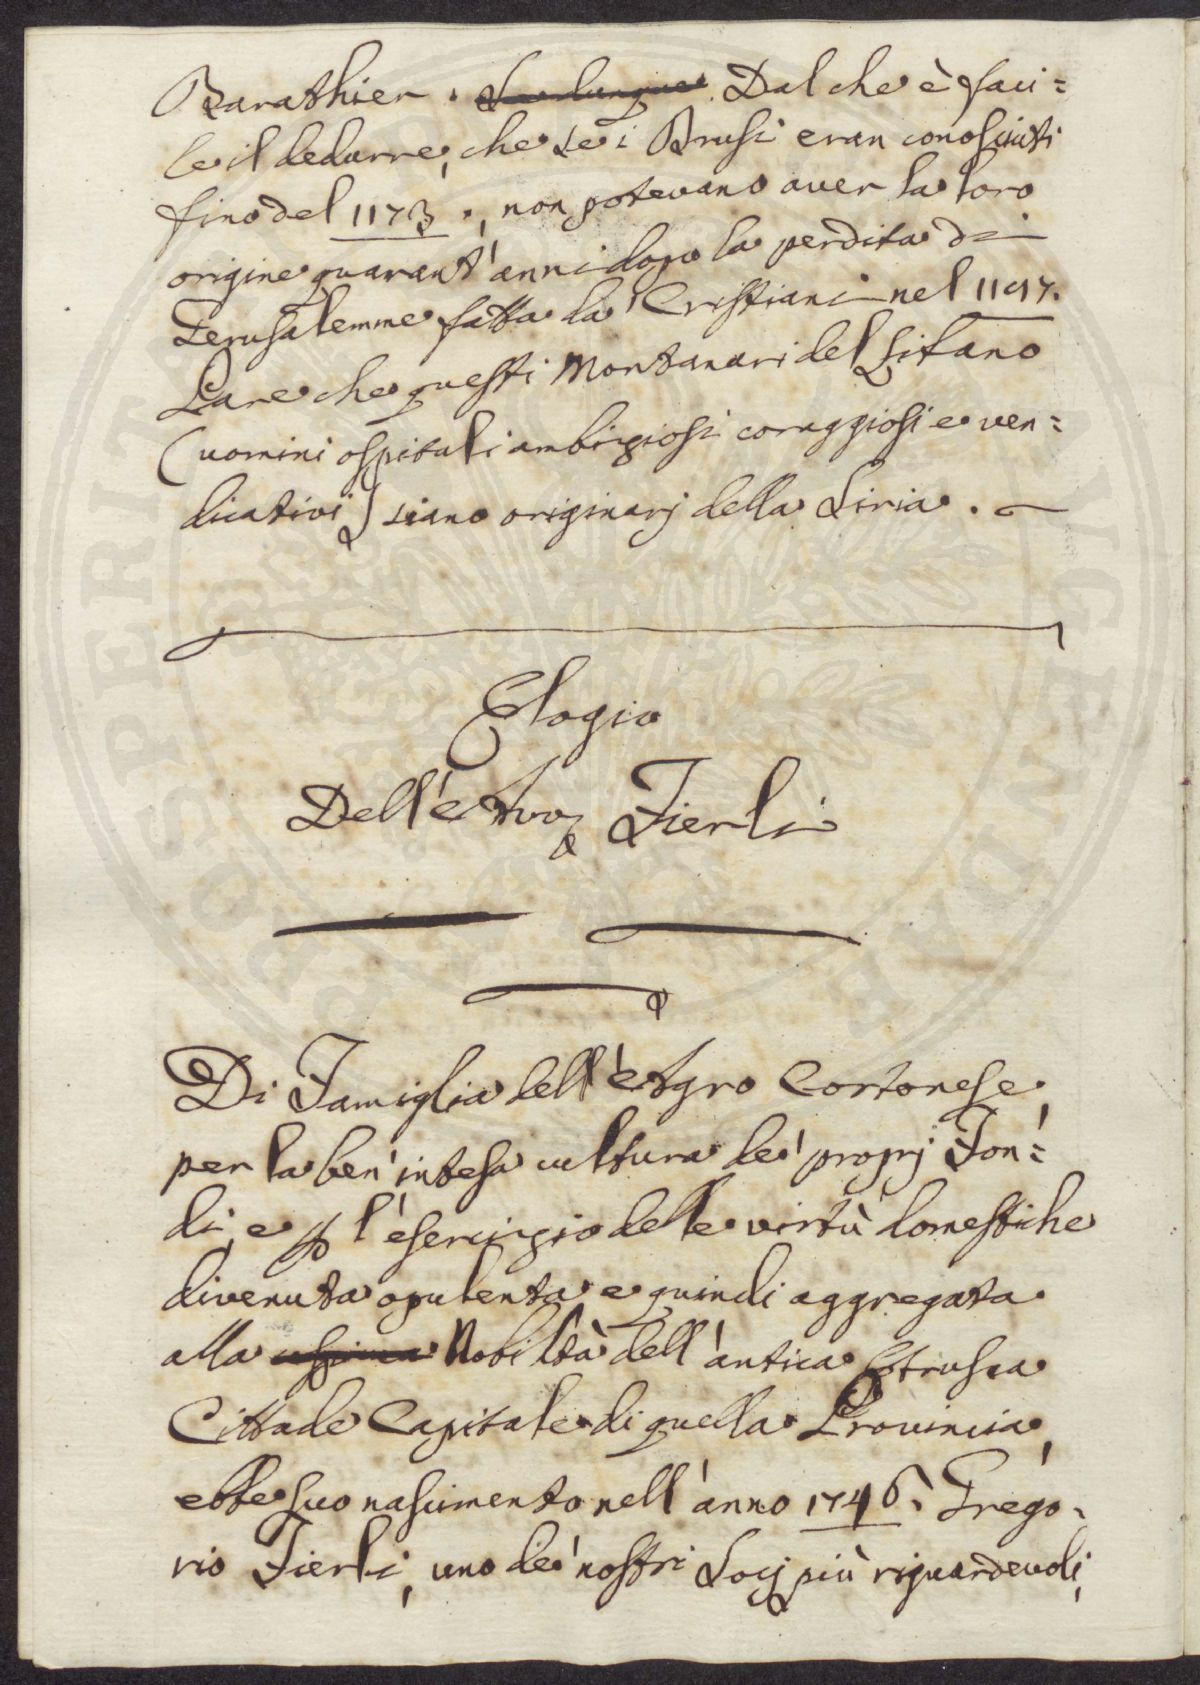 Barathier. Dal che è faci=
le il dedurre, che se i Drusi eran conosciuti
fino del 1173., non potevano aver la loro
origine quarant'anni dopo la perdita di
Gerusalemme fatta da' Cristiani nel 1197.
Pare che questi Montanari del Libano
(uomini ospitali ambiziosi coraggiosi e ven=
dicativi) siano originarj della Siria.
Elogio
Dell'Avv Fierli
Di Famiglia dell'Agro Cortonese,
per la ben' intesa cultura de' proprj Fon=
di, e p l'esercizio delle virtù domestiche
divenuta opulenta e quindi aggregata
alla Nobiltà dell'antica Etrusca
Cittade Capitale di quella Provincia,
ebbe suo nascimento nell'anno 1746. Grego=
rio Fierli, uno de' nostri Socj più riguardevoli,